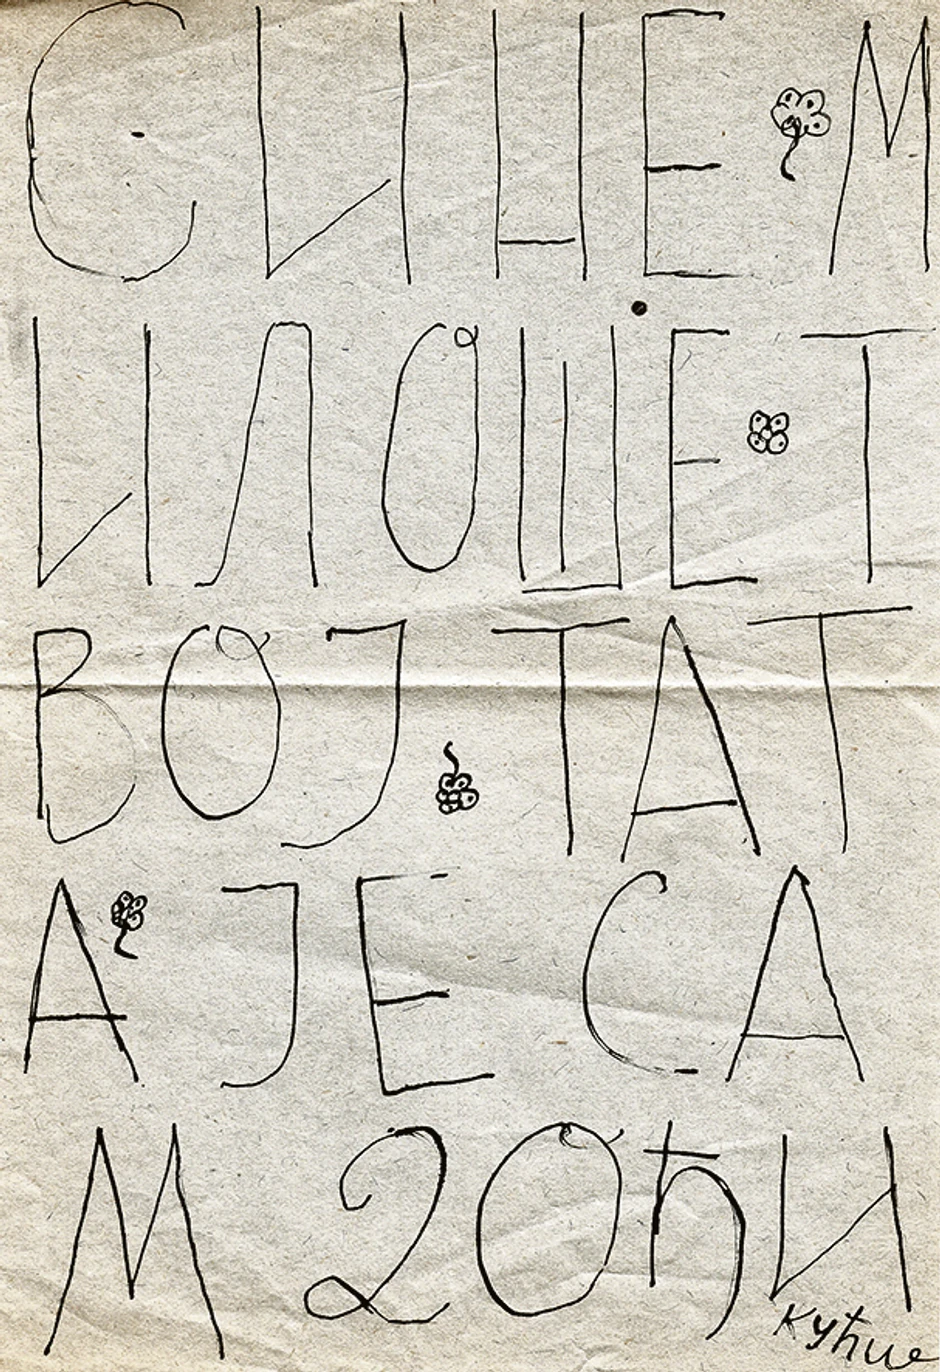 СИНЕ М
ИЛОШЕ Т
ВОЈ ТАТ
А ЈЕ СА
М ДОЋИ
кућие